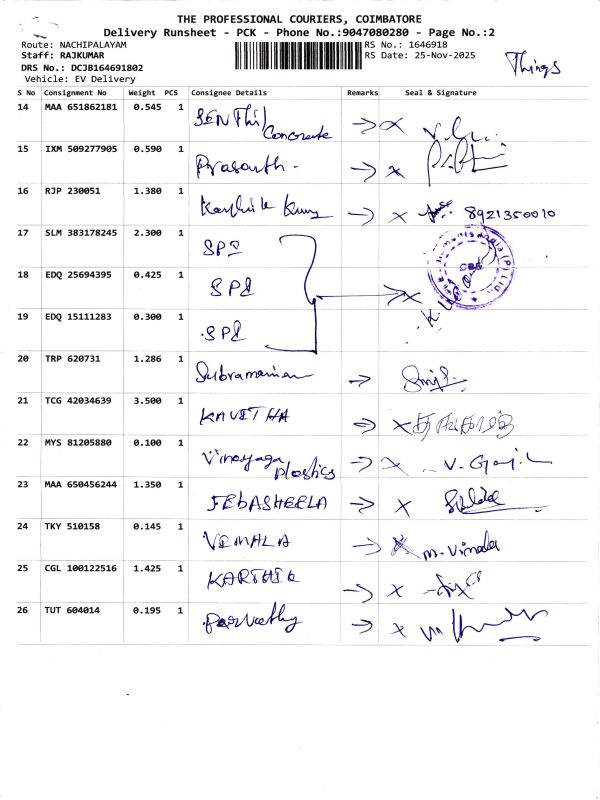 THE PROFESSIONAL COURIERS, COIMBATORE
Delivery Runsheet - PCK - Phone No.:9047080280 - Page No.:2
Route: NACHIPALAYAM
Staff: RAJKUMAR
DRS No.: DCJB164691802
Vehicle: EV Delivery
RS No.: 1646918
RS Date: 25-Nov-2025
Things
S No Consignment No Weight PCS Consignee Details Remarks Seal & Signature
14 MAA 651862181 0.545 1 SENThil
Concrete
15 IXM 509277905 0.590 1 Prasanth
16 RJP 230051 1.380 1 Karthik 8921350010
17 SLM 383178245 2.300 1 SPI
18 EDQ 25694395 0.425 1 SPI
19 EDQ 15111283 0.300 1 SPI
20 TRP 620731 1.286 1 Subramanian
21 TCG 42034639 3.500 1 KAVETHA
22 MYS 81205880 0.100 1 Vinayaga
Plastics
23 MAA 650456244 1.350 1 JEBASHEELA
24 TKY 510158 0.145 1 VEMALA M. Vimala
25 CGL 100122516 1.425 1 KARTHIK
26 TUT 604014 0.195 1 Parvathy